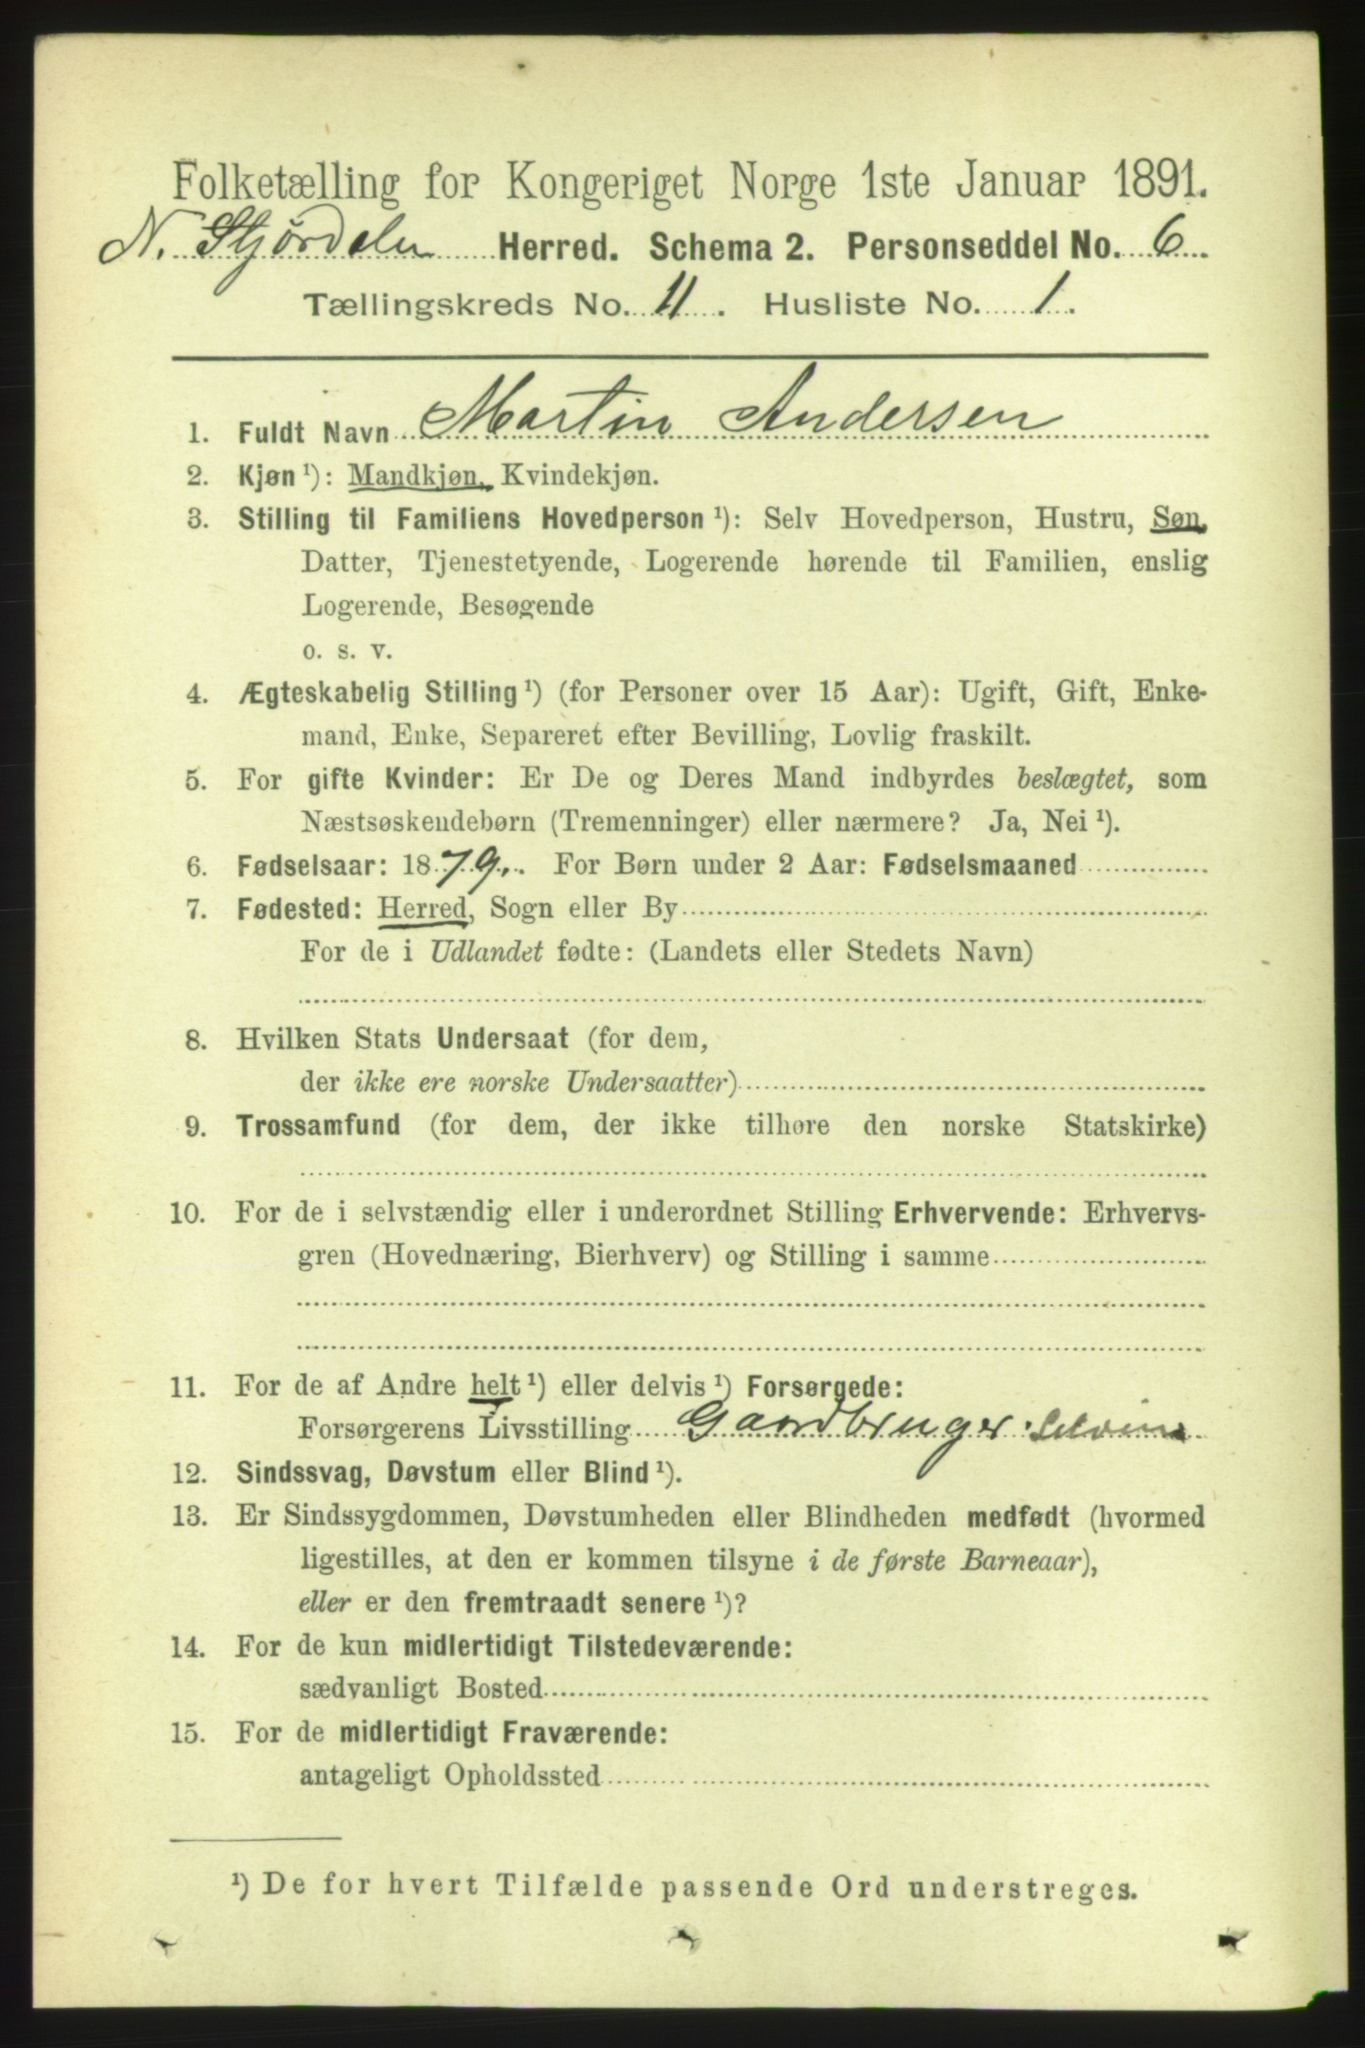 Folketælling for Kongeriget Norge 1ste Januar 1891.
N. Stjørdalen Herred. Schema 2. Personseddel No. 6
Tællingskreds No. 11. Husliste No. 1.
1. Fuldt Navn Martin Andersen
2. Kjøn ¹): Mandkjøn, Kvindekjøn.
3. Stilling til Familiens Hovedperson ¹): Selv Hovedperson, Hustru, Søn,
Datter, Tjenestetyende, Logerende hørende til Familien, enslig
Logerende, Besøgende
o. s. v.
4. Ægteskabelig Stilling ¹) (for Personer over 15 Aar): Ugift, Gift, Enke-
mand, Enke, Separeret efter Bevilling, Lovlig fraskilt.
5. For gifte Kvinder: Er De og Deres Mand indbyrdes beslægtet, som
Næstsøskendebørn (Tremenninger) eller nærmere? Ja, Nei ¹).
6. Fødselsaar: 1879. For Børn under 2 Aar: Fødselsmaaned
7. Fødested: Herred, Sogn eller By
For de i Udlandet fødte: (Landets eller Stedets Navn)
8. Hvilken Stats Undersaat (for dem,
der ikke ere norske Undersaatter)
9. Trossamfund (for dem, der ikke tilhøre den norske Statskirke)
10. For de i selvstændig eller i underordnet Stilling Erhvervende: Erhvervs-
gren (Hovednæring, Bierhverv) og Stilling i samme
11. For de af Andre helt ¹) eller delvis ¹) Forsørgede:
Forsørgerens Livsstilling Gaardbruger
12. Sindssvag, Døvstum eller Blind ¹).
13. Er Sindssygdommen, Døvstumheden eller Blindheden medfødt (hvormed
ligestilles, at den er kommen tilsyne i de første Barneaar),
eller er den fremtraadt senere ¹)?
14. For de kun midlertidigt Tilstedeværende:
sædvanligt Bosted
15. For de midlertidigt Fraværende:
antageligt Opholdssted
¹) De for hvert Tilfælde passende Ord understreges.